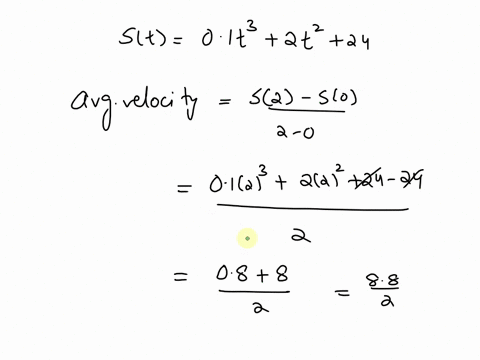 S(t) = 0.1t³ + 2t² + 24
Avg. velocity = S(2) - S(0) / 2-0
= 0.1(2)³ + 2(2)² + 24 - 24 / 2
= 0.8 + 8 / 2 = 8.8 / 2